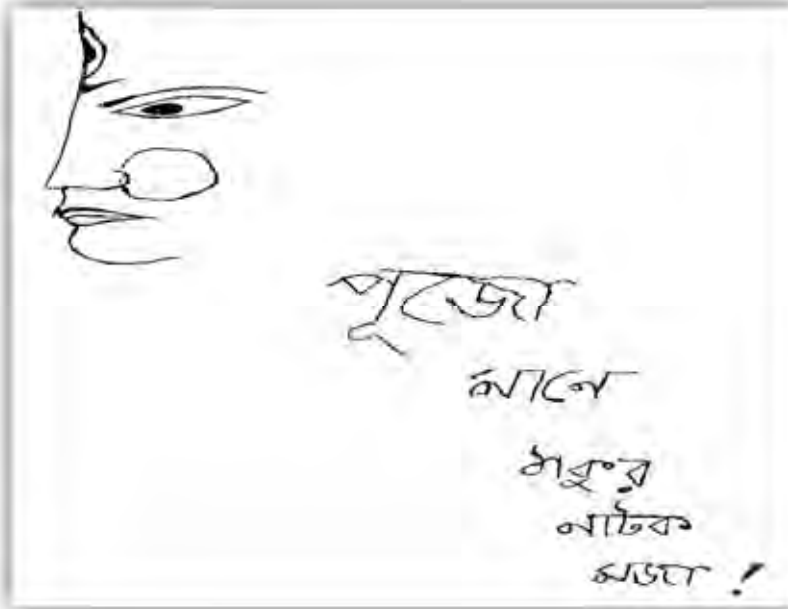 পূজো
মানে
ঠাকুর
নাটক
মজা !